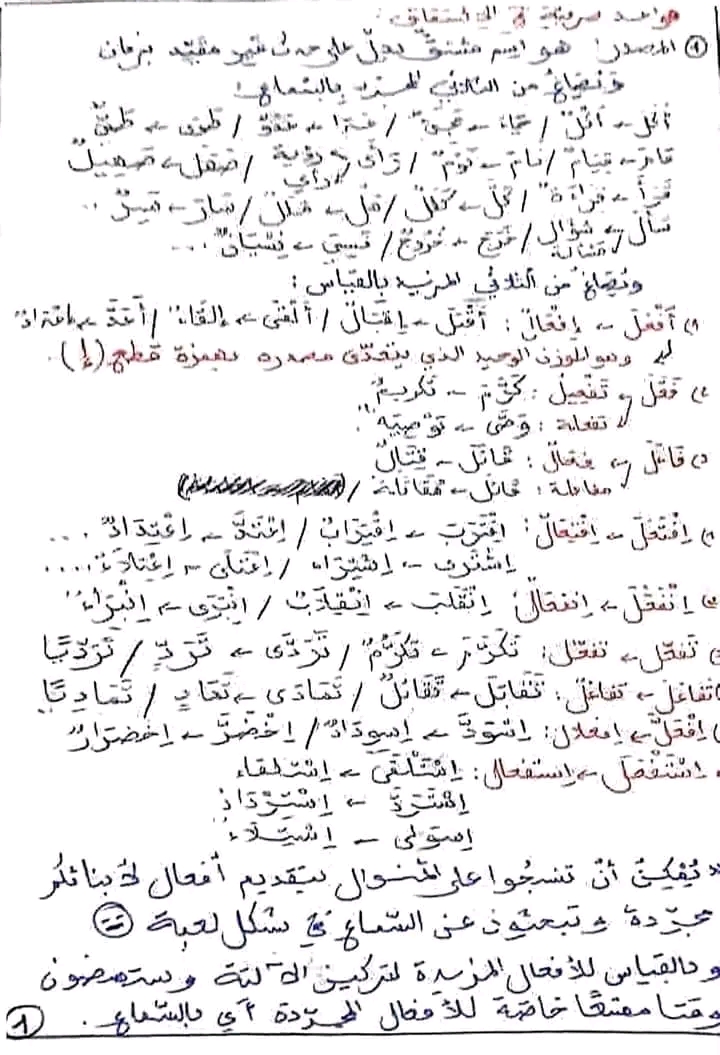 قواعد صرفية في الاشتقاق:
① المصدر: هو اسم مشتق يدل على حدث غير مقيد بزمان
ونصاغ من الثلاثي المجرد بالسماع:
أكل ← أكْلٌ / جاء ← مجيءٌ / غدا ← غدوٌّ / طوى ← طيٌّ
قام ← قيامٌ / نام ← نومٌ / رأى ← رؤية / رأي / صهل ← صهيلٌ
قرأ ← قراءةٌ / كلّ ← كللٌ / ضلّ ← ضلالٌ / سار ← سيرٌ ..
سأل ← سؤال / مسألة / خرج ← خروجٌ / نسي ← نسيانٌ ...
ونصاغ من الثلاثي المزيد بالقياس:
1) أفْعل ← إفعالٌ: أقْبَلَ ← إقبالٌ / ألْقى ← إلقاءٌ / أعدَّ ← إعدادٌ
وهو الوزن الوحيد الذي يتعدّى مصدره بهمزة قطع (إ).
2) فَعّل ← تَفْعيلٌ: كرّمَ ← تكريمٌ
تفعلة: وَصّى ← تَوْصِيَةٌ
3) فَاعَل ← فِعالٌ: قاتل ← قِتالٌ
مفاعلة: قاتل ← مُقاتلة /
1) اِفْتَعَلَ ← اِفْتِعالٌ: اقْتَرَبَ ← اِقْتِرابٌ / اِعْتَدَّ ← اِعْتِدادٌ ...
اِشْترى ← اِشْتِراء / اِعْتلى ← اِعْتِلاءٌ ....
2) اِنْفَعَلَ ← اِنفعالٌ: اِنْقَلَبَ ← اِنْقِلابٌ / اِنْبَرى ← اِنْبِراءٌ
تَفَعّل ← تَفَعُّل: تَكَرَّمَ ← تَكَرُّمٌ / تَرَدَّى ← تَرَدٍّ / تَرَدِّيًا
تفاعَلَ ← تفاعُلٌ: تَقَابَلَ ← تَقَابُلٌ / تَمَادَى ← تَمَادٍ / تَمَادِيًا
اِفْعَلَّ ← اِفعلال: اِسْوَدَّ ← اِسوِدادٌ / اِخْضَرَّ ← اِخضِرارٌ
اِسْتَفْعَلَ ← اِستفعال: اِسْتَلْقَى ← اِسْتلقاء
اِسْتَرَدَّ ← اِسْتِرْدادٌ
اِستولى ← اِسْتِيلاءٌ
* يُمْكِنُ أنْ تنسجُوا على المنوال بتقديم أفعال لأبنائكم
مجرّدة وتبحثون عن السّماع في شكل لعبة
وبالقياس للأفعال المزيدة لتركيز الآلية وستمضون
وقتا ممتعًا خاصّة للأفعال المجرّدة أي بالسّماع.
1